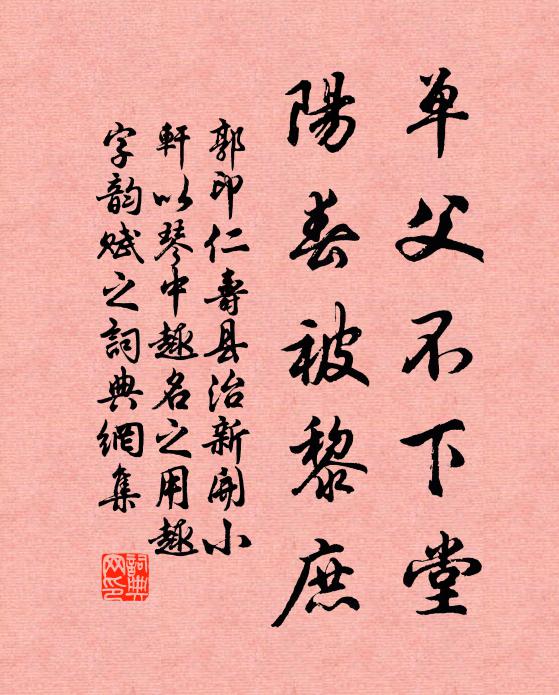 单父不下堂
陽春被黎庶
郭印仁壽县治新開小
軒以琴中趣名之用趣
字韵赋之詞典網集
詞典
网印